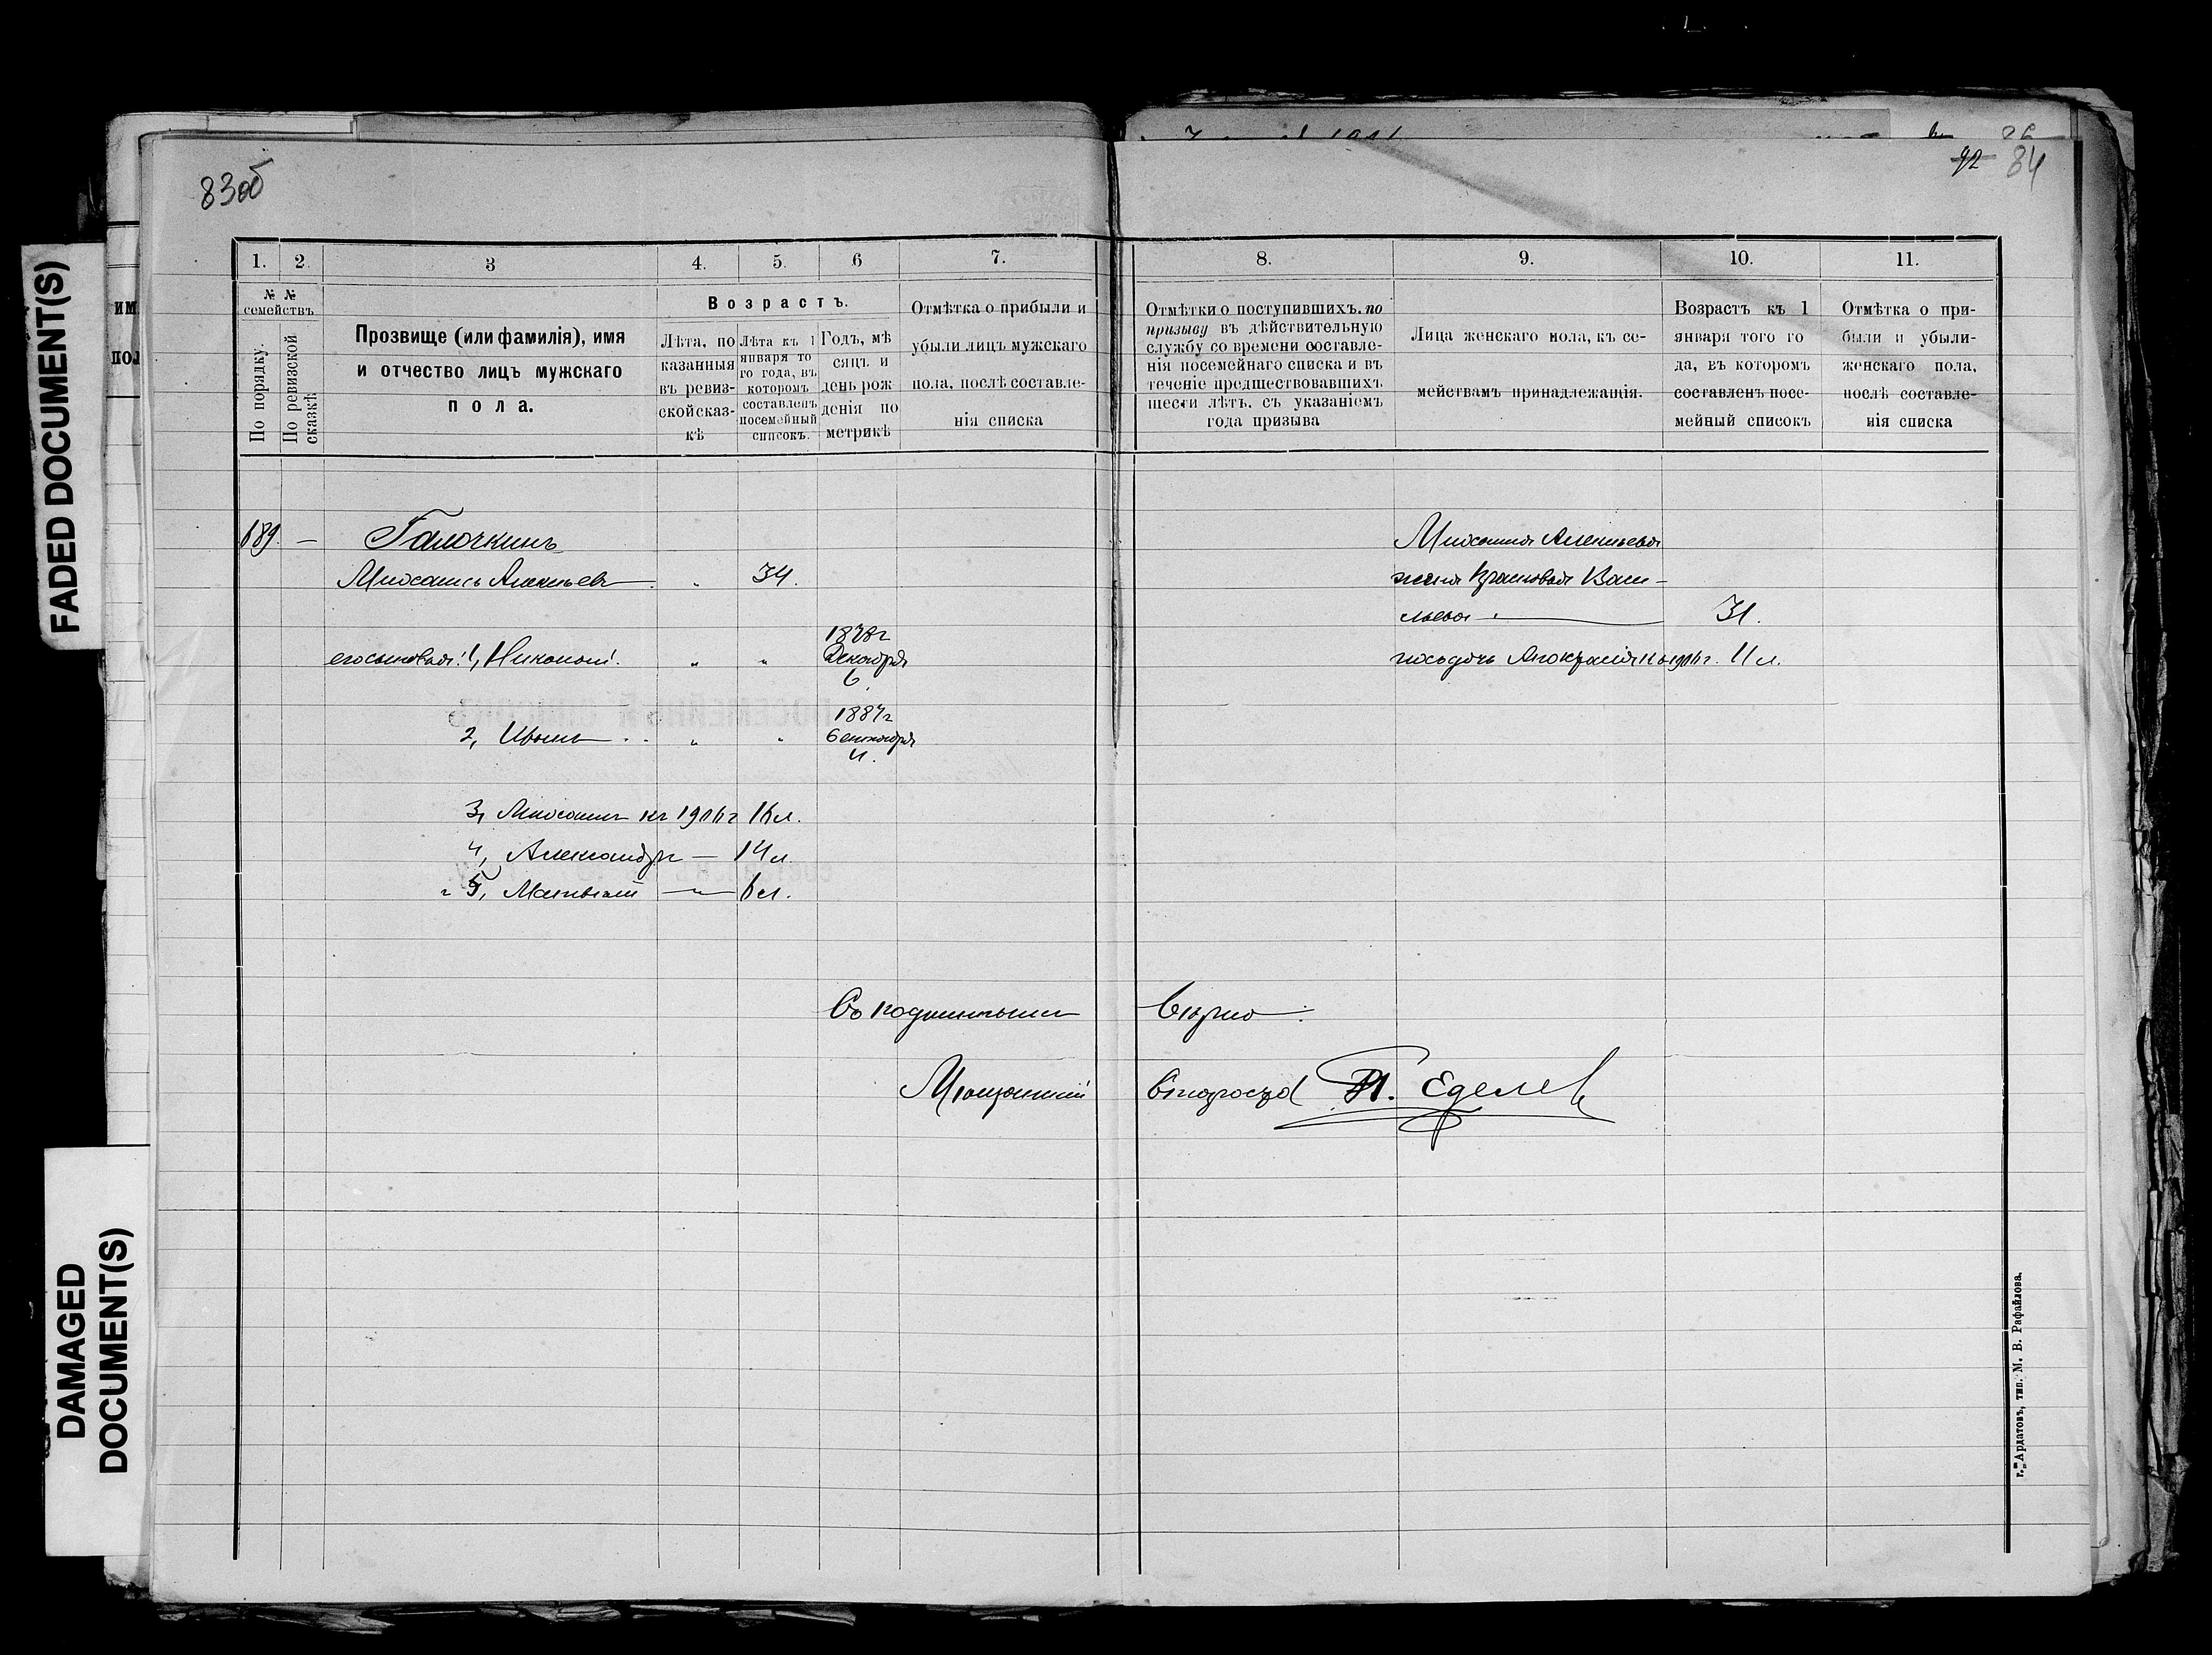 FADED DOCUMENT(S)
DAMAGED
DOCUMENT(S)
83об
92 84
1. 2. 3 4. 5. 6 7. 8. 9. 10. 11.
№ №
семействъ
По порядку.
По ревизской
сказкѣ
Прозвище (или фамилія), имя
и отчество лицъ мужскаго
пола.
Возрастъ.
Лѣта, по
казанныя
въ ревиз-
ской сказ-
кѣ
Лѣта къ 1
января то
го года, въ
которомъ
составленъ
посемейный
списокъ.
Годъ, мѣ
сяцъ и
день рож
денія по
метрикѣ
Отмѣтка о прибыли и
убыли лицъ мужскаго
пола, послѣ составле-
нія списка
Отмѣтки о поступившихъ по
призыву въ дѣйствительную
службу со времени составле-
нія посемейнаго списка и въ
теченіе предшествовавшихъ
шести лѣтъ, съ указаніемъ
года призыва
Лица женскаго пола, къ се-
мействамъ принадлежащія.
Возрастъ къ 1
января того го
да, въ которомъ
составленъ посе-
мейный списокъ
Отмѣтка о при-
были и убыли-
женскаго пола,
послѣ составле-
нія списка
189. — Галочкинъ
34.
его сыновья: 1, Николай. " "
1878г
Декабря
6.
2, Иванъ " "
1887г
Сентября
4.
3, къ 1906г 16 л.
4, Александръ — 14 л.
5, Матвѣй — " — 6 л.
жена Васи-
льева 31.
дочь 11 л.
Съ подлиннымъ Вѣрно.
Мѣщанскій Староста Еделев
г. Ардатовъ, тип. М. В. Рафайлова.